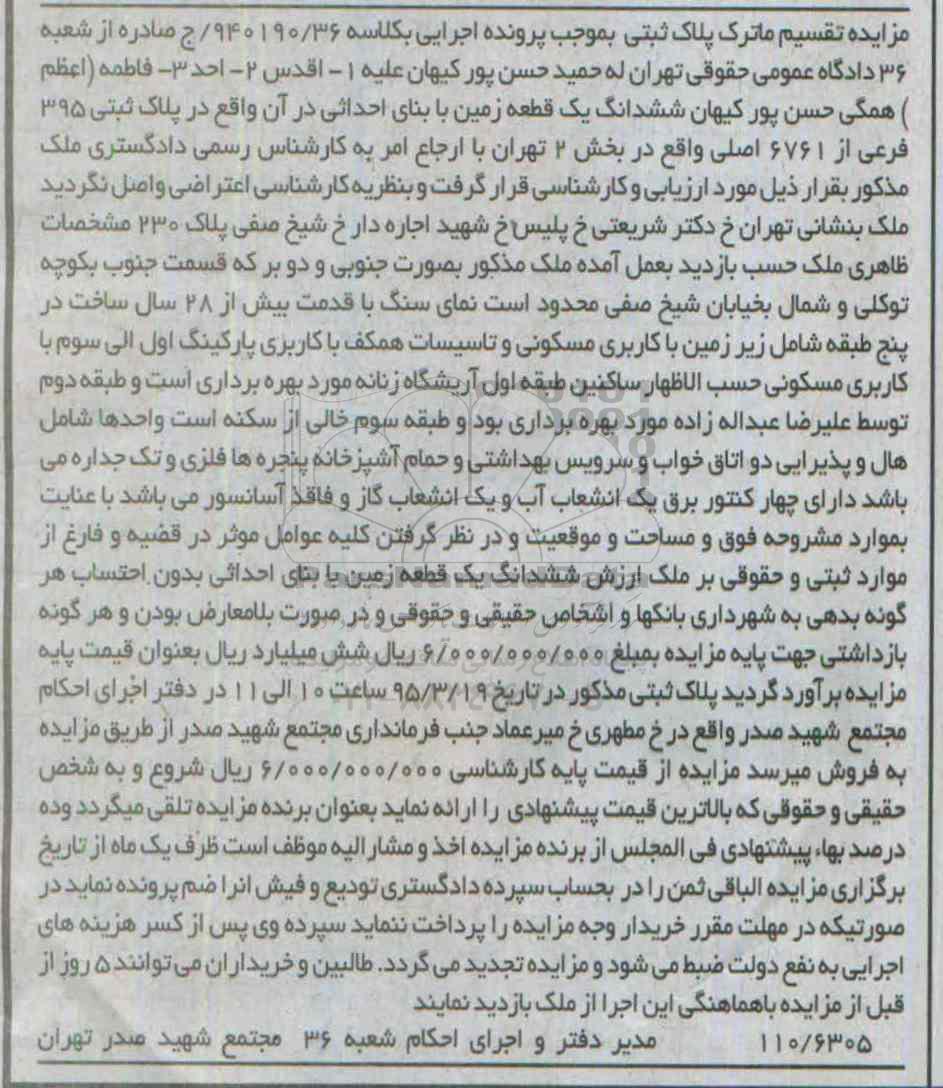 مزایده تقسیم ماترک پلاک ثبتی بموجب پرونده اجرایی بکلاسه ۹۴۰۱۹۰/۳۶/ ج صادره از شعبه
۳۶ دادگاه عمومی حقوقی تهران له حمید حسن پور کیهان علیه ۱- اقدس ۲- احد ۳- فاطمه (اعظم
) همگی حسن پور کیهان ششدانگ یک قطعه زمین با بنای احداثی در آن واقع در پلاک ثبتی ۳۹۵
فرعی از ۶۷۶۱ اصلی واقع در بخش ۲ تهران با ارجاع امر به کارشناس رسمی دادگستری ملک
مذکور بقرار ذیل مورد ارزیابی و کارشناسی قرار گرفت و بنظریه کارشناسی اعتراضی واصل نگردید
ملک بنشانی تهران خ دکتر شریعتی خ پلیس خ شهید اجاره دار خ شیخ صفی پلاک ۲۳۰ مشخصات
ظاهری ملک حسب بازدید بعمل آمده ملک مذکور بصورت جنوبی و دو بر که قسمت جنوب بکوچه
توکلی و شمال بخیابان شیخ صفی محدود است نمای سنگ با قدمت بیش از ۲۸ سال ساخت در
پنج طبقه شامل زیر زمین با کاربری مسکونی و تاسیسات همکف با کاربری پارکینگ اول الی سوم با
کاربری مسکونی حسب الاظهار ساکنین طبقه اول آریشگاه زنانه مورد بهره برداری است و طبقه دوم
توسط علیرضا عبداله زاده مورد بهره برداری بود و طبقه سوم خالی از سکنه است واحدها شامل
هال و پذیرایی دو اتاق خواب و سرویس بهداشتی و حمام آشپزخانه پنجره ها فلزی و تک جداره می
باشد دارای چهار کنتور برق یک انشعاب آب و یک انشعاب گاز و فاقد آسانسور می باشد با عنایت
بموارد مشروحه فوق و مساحت و موقعیت و در نظر گرفتن کلیه عوامل موثر در قضیه و فارغ از
موارد ثبتی و حقوقی بر ملک ارزش ششدانگ یک قطعه زمین با بنای احداثی بدون احتساب هر
گونه بدهی به شهرداری بانکها و اشخاص حقیقی و حقوقی و در صورت بلامعارض بودن و هر گونه
بازداشتی جهت پایه مزایده بمبلغ ۶/۰۰۰/۰۰۰/۰۰۰ ریال شش میلیارد ریال بعنوان قیمت پایه
مزایده برآورد گردید پلاک ثبتی مذکور در تاریخ ۹۵/۳/۱۹ ساعت ۱۰ الی ۱۱ در دفتر اجرای احکام
مجتمع شهید صدر واقع در خ مطهری خ میرعماد جنب فرمانداری مجتمع شهید صدر از طریق مزایده
به فروش میرسد مزایده از قیمت پایه کارشناسی ۶/۰۰۰/۰۰۰/۰۰۰ ریال شروع و به شخص
حقیقی و حقوقی که بالاترین قیمت پیشنهادی را ارائه نماید بعنوان برنده مزایده تلقی میگردد وده
درصد بهاء پیشنهادی فی المجلس از برنده مزایده اخذ و مشارالیه موظف است ظرف یک ماه از تاریخ
برگزاری مزایده الباقی ثمن را در بحساب سپرده دادگستری تودیع و فیش انرا ضم پرونده نماید در
صورتیکه در مهلت مقرر خریدار وجه مزایده را پرداخت ننماید سپرده وی پس از کسر هزینه های
اجرایی به نفع دولت ضبط می شود و مزایده تجدید می گردد. طالبین و خریداران می توانند ۵ روز از
قبل از مزایده باهماهنگی این اجرا از ملک بازدید نمایند
۱۱۰/۶۳۰۵ مدیر دفتر و اجرای احکام شعبه ۳۶ مجتمع شهید صدر تهران